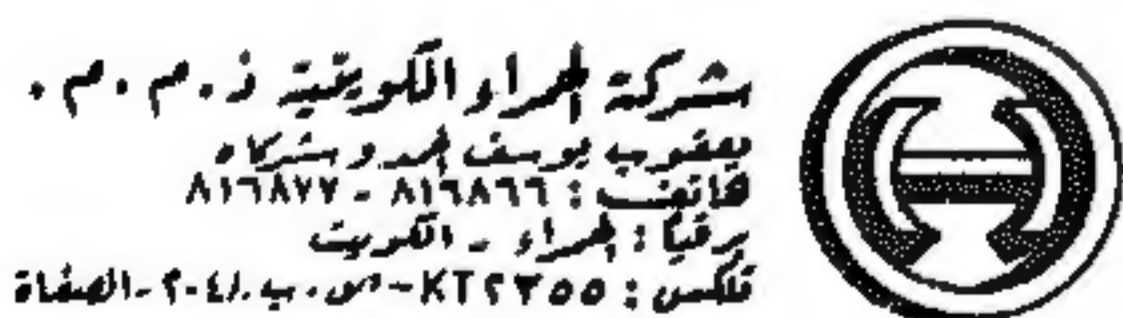 شركة الحمراء الكويتية ذ.م.م.
يعقوب يوسف الحمد وشركاه
هاتف : ٨١٦٨٦٦ - ٨١٦٨٧٧
برقياً : الحمراء - الكويت
تلكس : KT ٢٣٥٥ - ص.ب. ٢٠٤١ - الصفاة